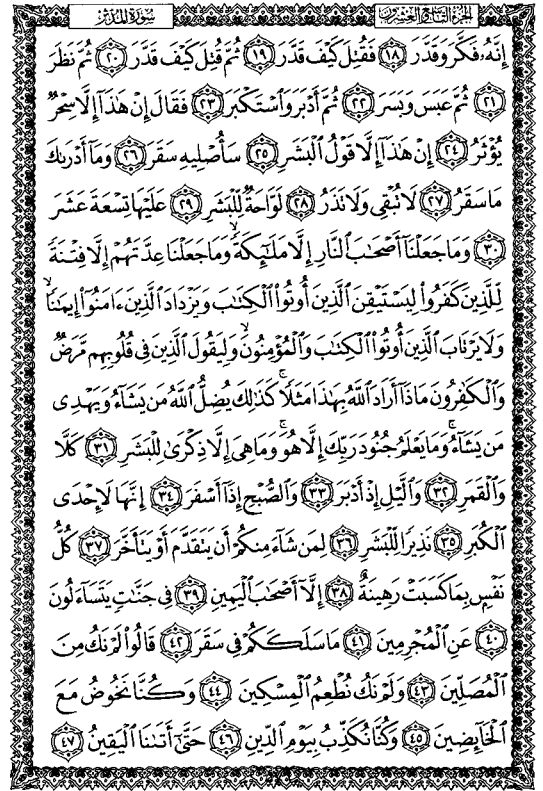 الجزء التاسع والعشرون سورة المدثر
إِنَّهُۥ فَكَّرَ وَقَدَّرَ ١٨ فَقُتِلَ كَيْفَ قَدَّرَ ١٩ ثُمَّ قُتِلَ كَيْفَ قَدَّرَ ٢٠ ثُمَّ نَظَرَ
٢١ ثُمَّ عَبَسَ وَبَسَرَ ٢٢ ثُمَّ أَدْبَرَ وَٱسْتَكْبَرَ ٢٣ فَقَالَ إِنْ هَٰذَآ إِلَّا سِحْرٌ
يُؤْثَرُ ٢٤ إِنْ هَٰذَآ إِلَّا قَوْلُ ٱلْبَشَرِ ٢٥ سَأُصْلِيهِ سَقَرَ ٢٦ وَمَآ أَدْرَىٰكَ
مَا سَقَرُ ٢٧ لَا تُبْقِى وَلَا تَذَرُ ٢٨ لَوَّاحَةٌ لِّلْبَشَرِ ٢٩ عَلَيْهَا تِسْعَةَ عَشَرَ
٣٠ وَمَا جَعَلْنَآ أَصْحَٰبَ ٱلنَّارِ إِلَّا مَلَٰٓئِكَةً ۙ وَمَا جَعَلْنَا عِدَّتَهُمْ إِلَّا فِتْنَةً
لِّلَّذِينَ كَفَرُوا۟ لِيَسْتَيْقِنَ ٱلَّذِينَ أُوتُوا۟ ٱلْكِتَٰبَ وَيَزْدَادَ ٱلَّذِينَ ءَامَنُوٓا۟ إِيمَٰنًا ۙ
وَلَا يَرْتَابَ ٱلَّذِينَ أُوتُوا۟ ٱلْكِتَٰبَ وَٱلْمُؤْمِنُونَ ۙ وَلِيَقُولَ ٱلَّذِينَ فِى قُلُوبِهِم مَّرَضٌ
وَٱلْكَٰفِرُونَ مَاذَآ أَرَادَ ٱللَّهُ بِهَٰذَا مَثَلًا ۚ كَذَٰلِكَ يُضِلُّ ٱللَّهُ مَن يَشَآءُ وَيَهْدِى
مَن يَشَآءُ ۚ وَمَا يَعْلَمُ جُنُودَ رَبِّكَ إِلَّا هُوَ ۚ وَمَا هِىَ إِلَّا ذِكْرَىٰ لِلْبَشَرِ ٣١ كَلَّا
وَٱلْقَمَرِ ٣٢ وَٱلَّيْلِ إِذْ أَدْبَرَ ٣٣ وَٱلصُّبْحِ إِذَآ أَسْفَرَ ٣٤ إِنَّهَا لَإِحْدَى
ٱلْكُبَرِ ٣٥ نَذِيرًا لِّلْبَشَرِ ٣٦ لِمَن شَآءَ مِنكُمْ أَن يَتَقَدَّمَ أَوْ يَتَأَخَّرَ ٣٧ كُلُّ
نَفْسٍۭ بِمَا كَسَبَتْ رَهِينَةٌ ٣٨ إِلَّآ أَصْحَٰبَ ٱلْيَمِينِ ٣٩ فِى جَنَّٰتٍ يَتَسَآءَلُونَ
٤٠ عَنِ ٱلْمُجْرِمِينَ ٤١ مَا سَلَكَكُمْ فِى سَقَرَ ٤٢ قَالُوا۟ لَمْ نَكُ مِنَ
ٱلْمُصَلِّينَ ٤٣ وَلَمْ نَكُ نُطْعِمُ ٱلْمِسْكِينَ ٤٤ وَكُنَّا نَخُوضُ مَعَ
ٱلْخَآئِضِينَ ٤٥ وَكُنَّا نُكَذِّبُ بِيَوْمِ ٱلدِّينِ ٤٦ حَتَّىٰٓ أَتَىٰنَا ٱلْيَقِينُ ٤٧